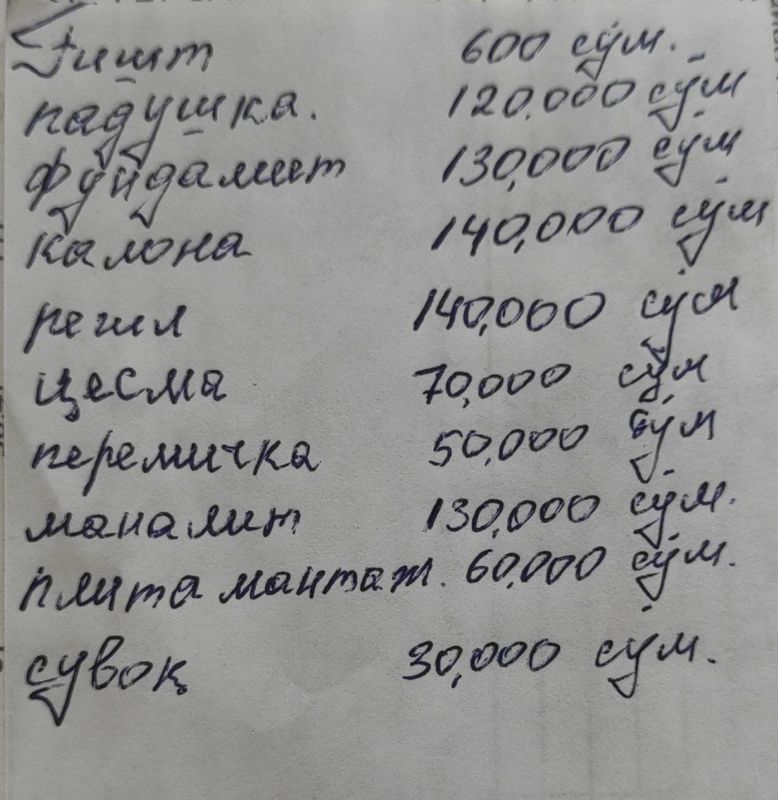 Гишт 600 сўм.
падушка. 120.000 сўм
фундамит 130,000 сўм
калона 140,000 сўм
регил 140,000 сўм
цесма 70,000 сўм
перемичка 50,000 сўм
маналит 130,000 сўм.
плита мантаж. 60,000 сўм.
сувоқ 30,000 сўм.